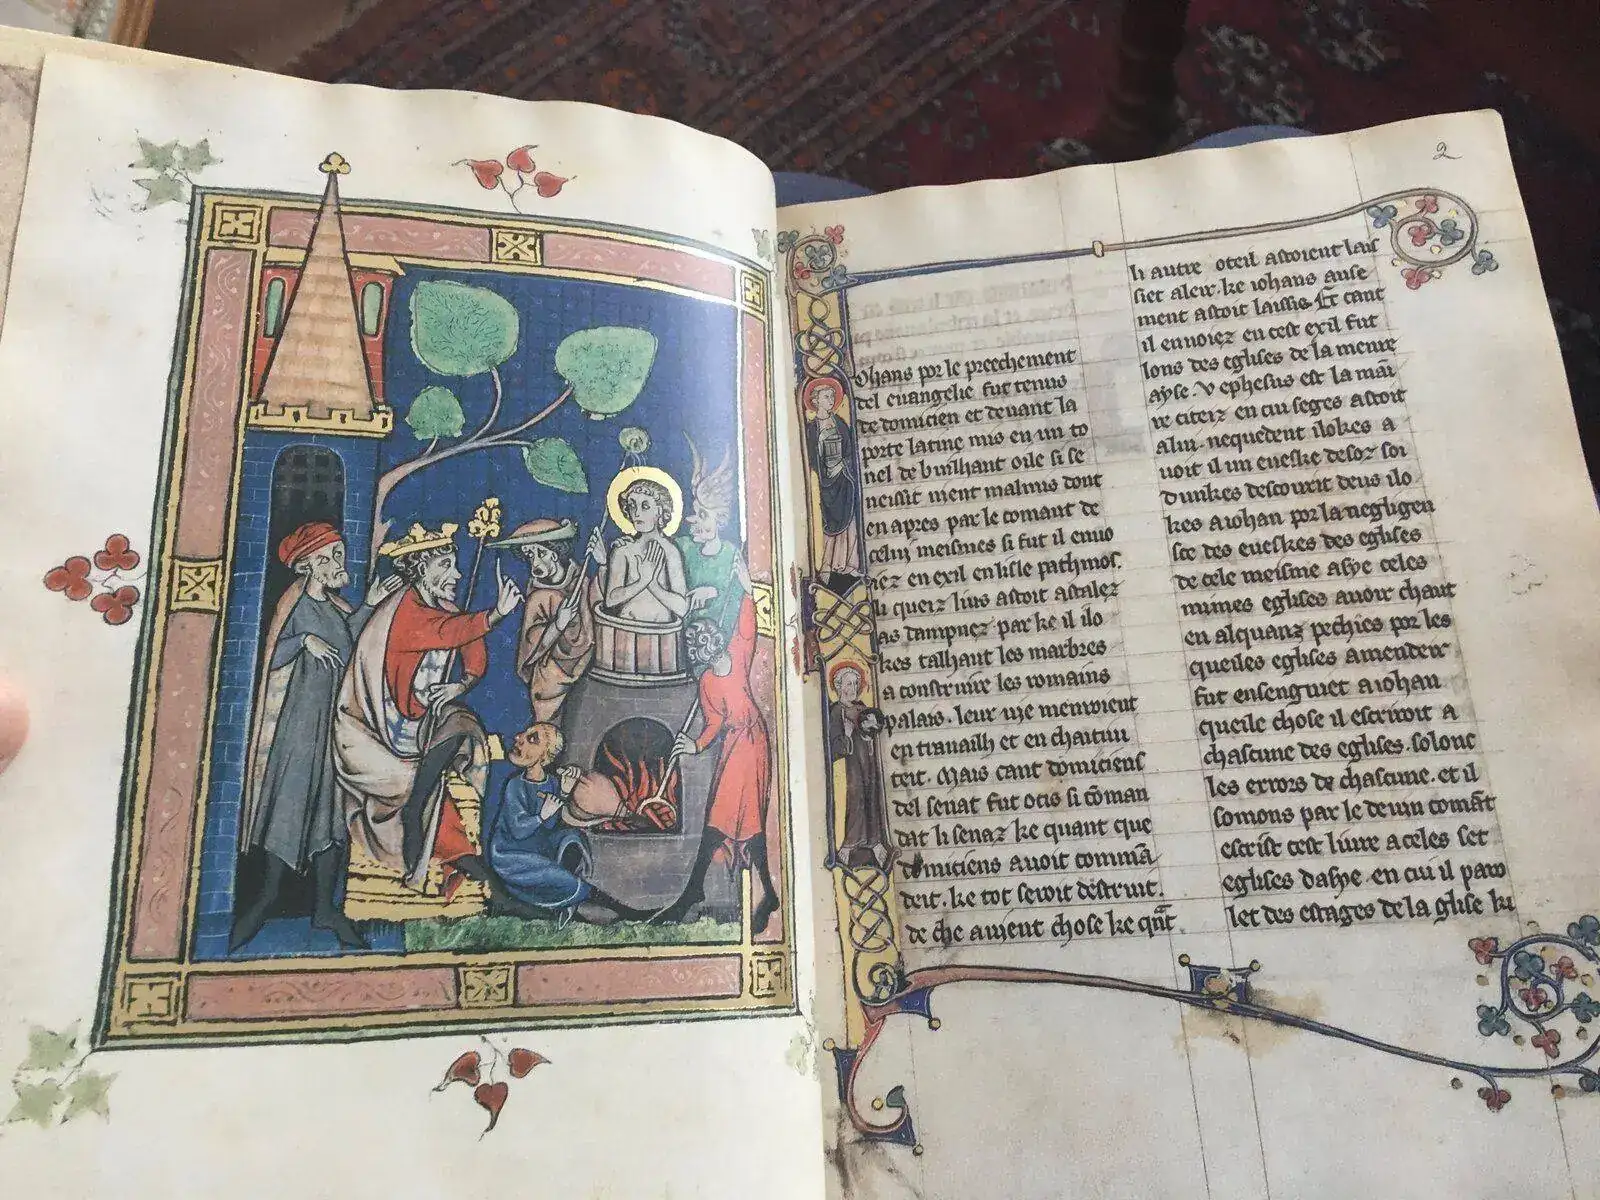 2
Ohans por le preechement
del euangelie fut tenus
de domicien et deuant la
porte latine mis en un to
nel de builhant oile si se
neissit nient malmis dont
en apres par le comant de
celui meismes si fut il enuo
iez en exil en lisle pathmos.
li queiz luis astoit astalez
as dampnez par ke il ilo
kes talhant les marbres
a construire les romains
palais. leur uie menroient
en trauailh et en chaitiui
teit. Mais cant domiciens
del senat fut ocis si cõman
dat li senaz ke quant que
domiciens auoit commã
deit. ke tot seroit destruit.
de che auient chose ke qñt
li autre oteil astoient lais
siet aleir. ke iohans ause
ment astoit laissie. Et cant
il enuoiez en cest exil fut
lons des eglises de la menre
ayse. V ephesus est la mai
re citeiz en cui seges astoit
alui. nequedent ilokes a
uoit il un eueske desoz soi
Dunkes descourit deus ilo
kes a iohan por la negligen
sce des eueskes des eglises
de cele meisme asye celes
mimes eglises auoir chaut
en alquanz pechies por les
queiles eglises amendeir
fut ensengniet a iohan
queile chose il escriroit a
chascune des eglises. solonc
les errors de chascune. et il
somons par le deuin comãt
escrist cest liure a celes set
eglises dasye. en cui il paro
let des estages de la glise ki